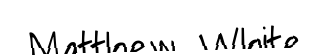 Matthew White